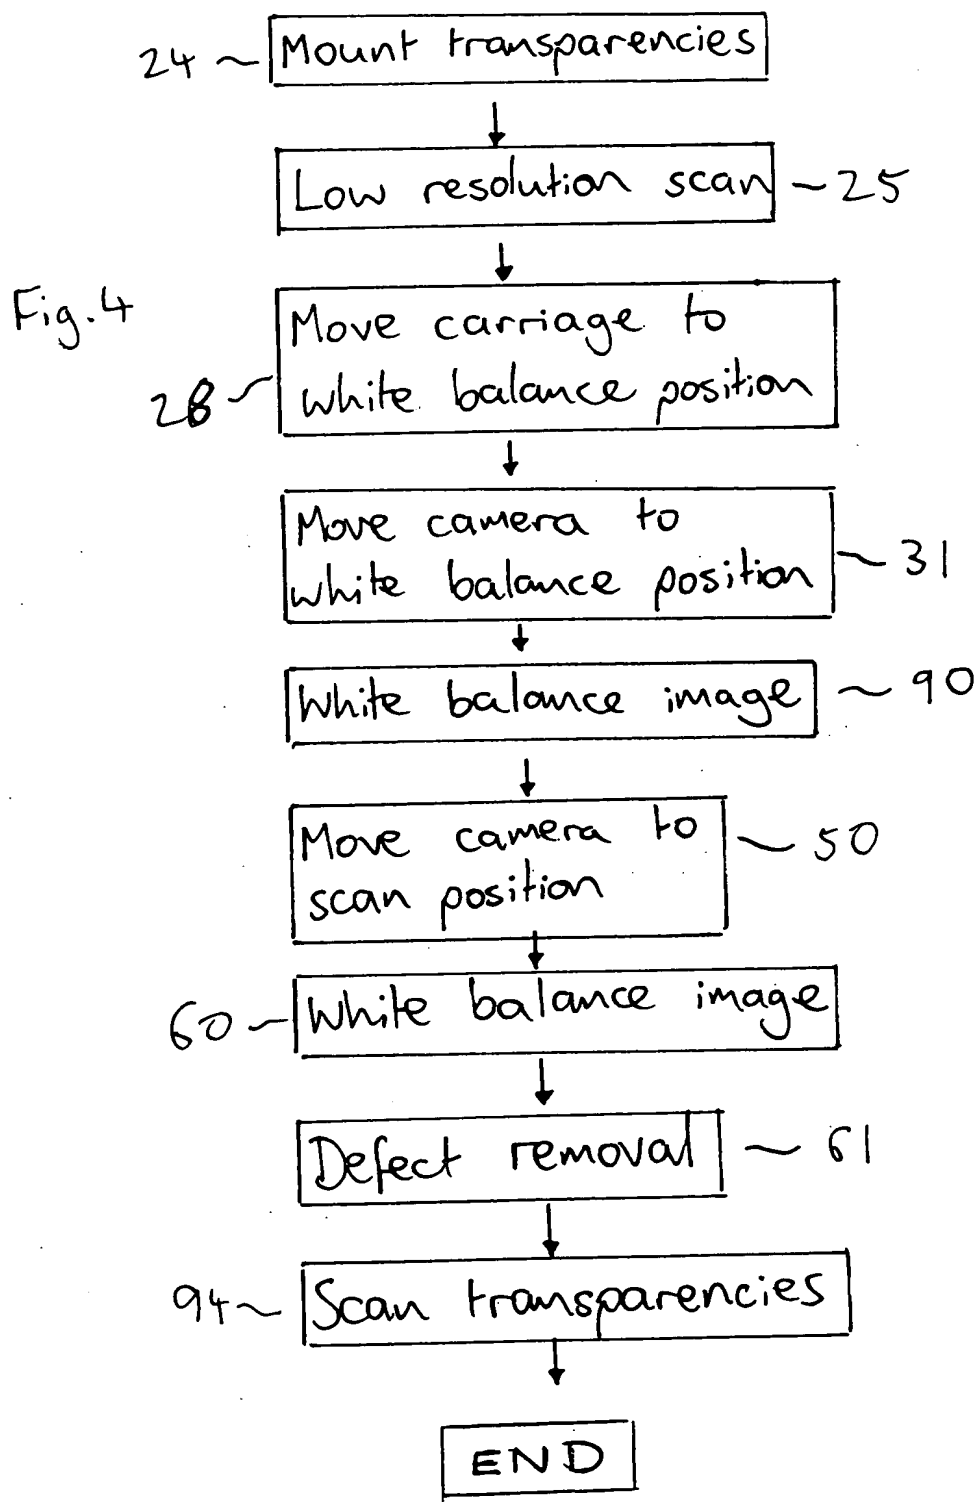 24 Mount transparencies
Low resolution scan 25
Fig.4
Move carriage to
28 white balance position
Move camera to
white balance position 31
White balance image 90
Move camera to 50
scan position
60 White balance image
Defect removal 61
94 Scan transparencies
END